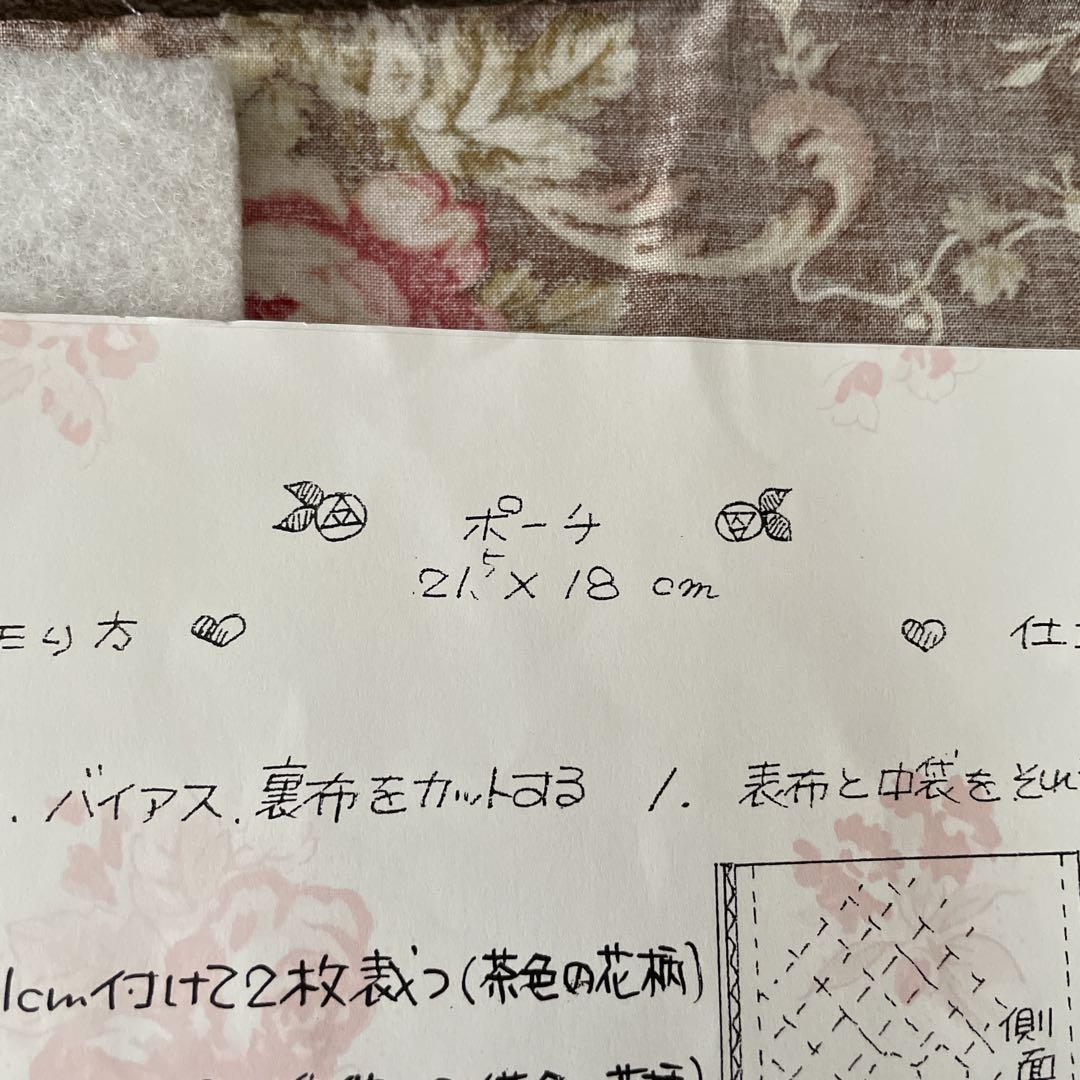 ポーチ
21.5 × 18 cm
り方
仕
. バイアス. 裏布をカットする
1. 表布と中袋をそれ
1cm付けて2枚裁つ(茶色の花柄)
側面